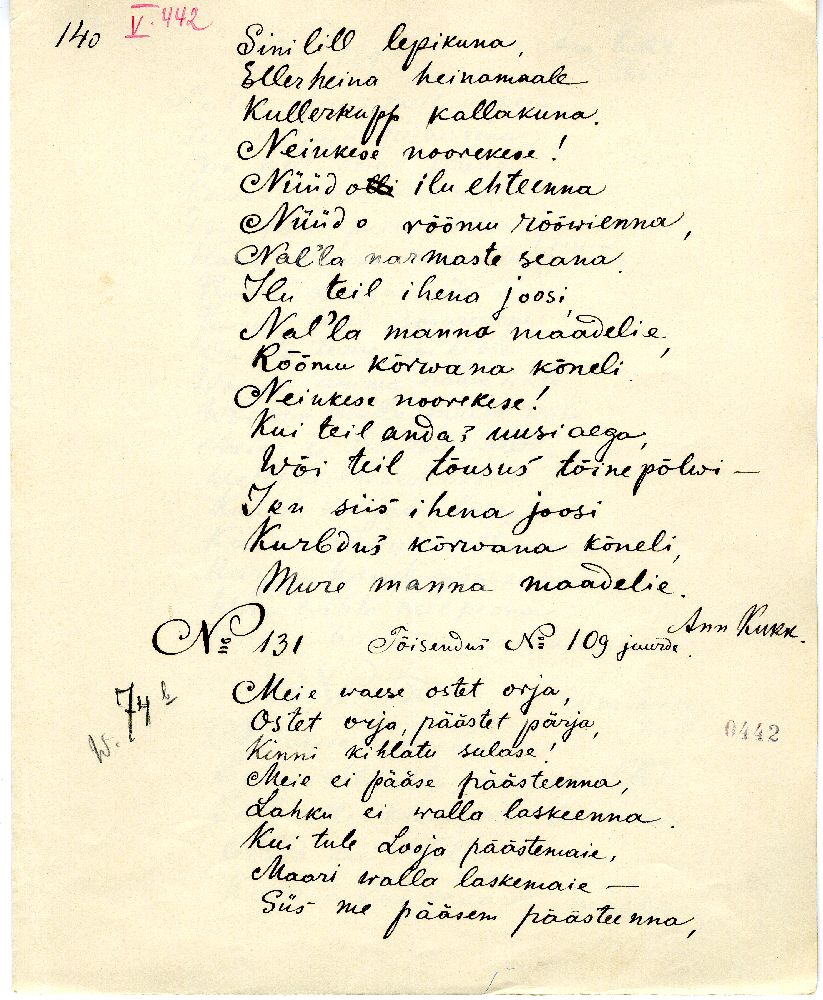 140 V. 442
Sinilill lepikuna,
Ellerheina heinamaale
Kullerkupp kallakuna.
Neiukese noorekese!
Nüüd o ilu ehteenna
Nüüd o rõõmu rööwienna,
Nal'la narmaste seana.
Ilu teil ihena joosi,
Nal'la manna maadelie,
Rõõmu kõrwana kõneli.
Neiukese noorekese!
Kui teil andas uusi aega,
Wõi teil tõusus tõine põlwi —
Iku siis ihena joosi
Kurbdus kõrwana kõneli,
Mure manna maadelie.
Ann Kukk.
No 131 Tõisendus No 109 juurde.
Meie waese ostet orja,
Ostet orja, päästet pärja,
Kinni kihlatu sulase!
W. 74 b
0442
Meie ei pääse päästeenna,
Lahku ei walla laskeenna.
Kui tule Looja päästemaie,
Maari walla laskemaie —
Siis me pääsem päästeenna,